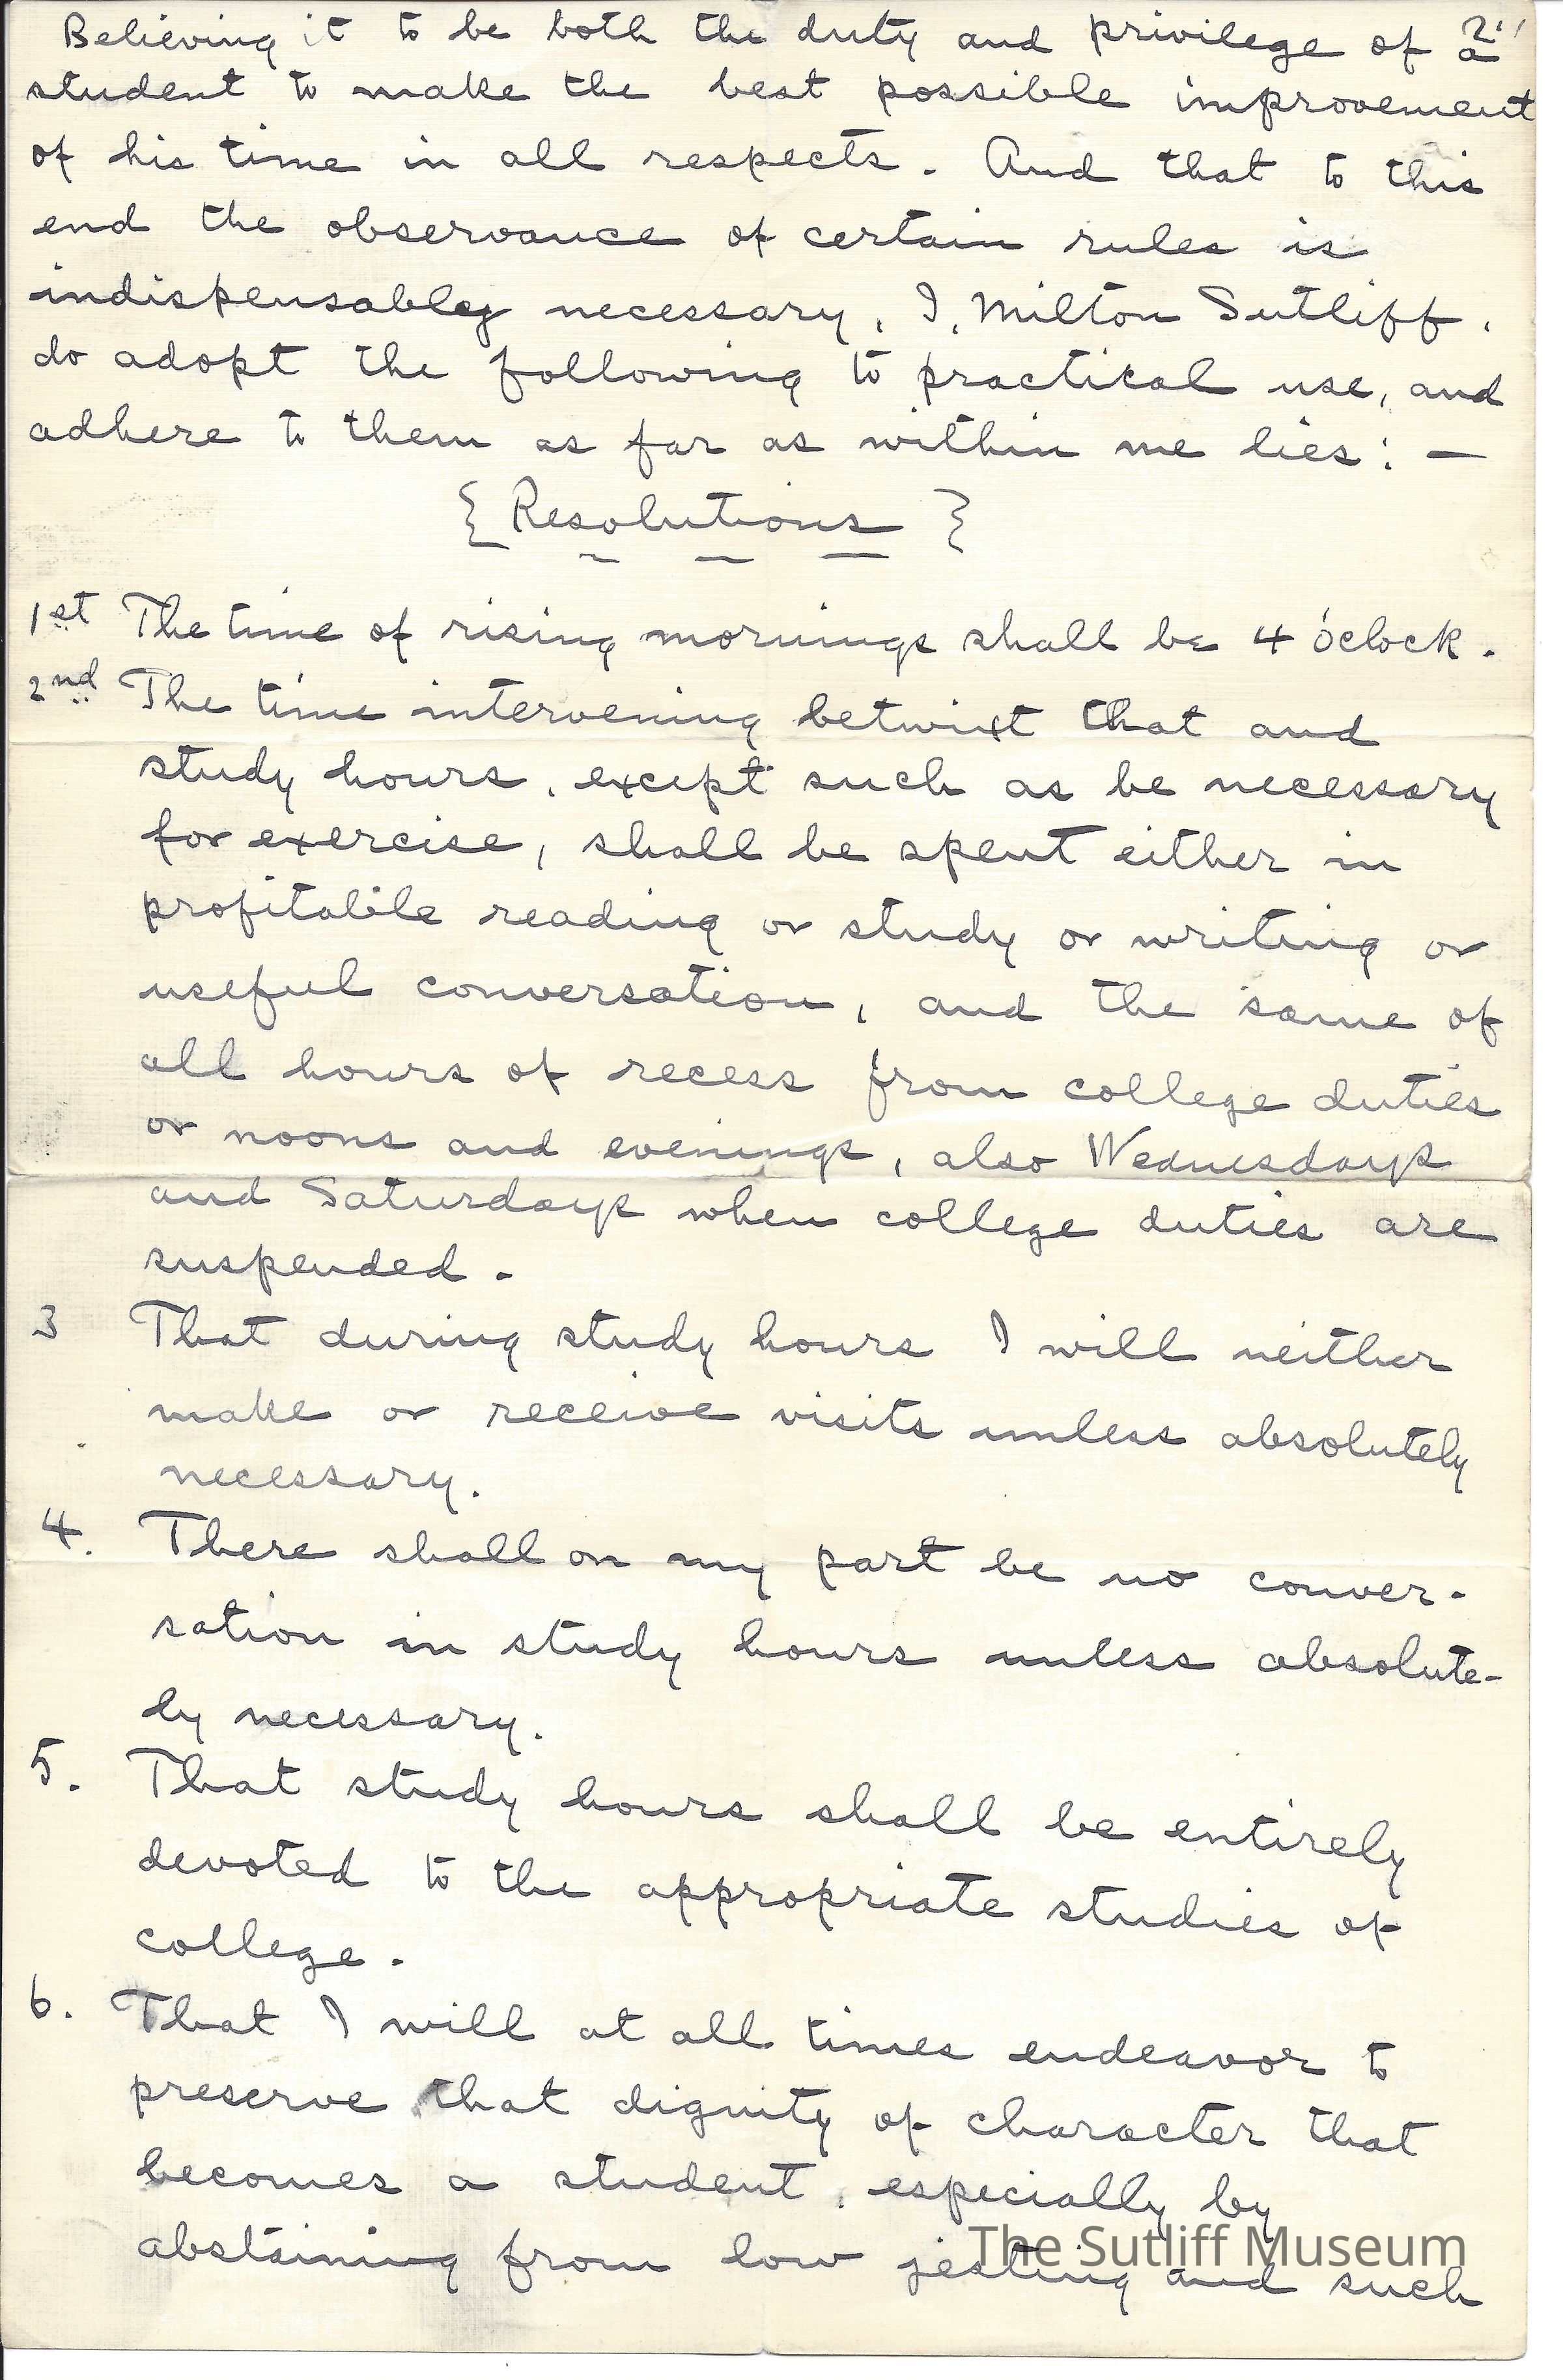 2''
Believing it to be both the duty and privilege of a
student to make the best possible improvement
of his time in all respects. And that to this
end the observance of certain rules is
indispensably necessary, I, Milton Sutliff,
do adopt the following to practical use, and
adhere to them as far as within me lies: —
{ Resolutions }
1st The time of rising mornings shall be 4 o'clock.
2nd The time intervening betwixt that and
study hours, except such as be necessary
for exercise, shall be spent either in
profitable reading or study or writing or
useful conversation, and the same of
all hours of recess from college duties
or noons and evenings, also Wednesdays
and Saturdays when college duties are
suspended.
3 That during study hours I will neither
make or receive visits unless absolutely
necessary.
4. There shall on my part be no conver-
sation in study hours unless absolute-
ly necessary.
5. That study hours shall be entirely
devoted to the appropriate studies of
college.
6. That I will at all times endeavor to
preserve that dignity of character that
becomes a student, especially by
abstaining from low jesting and such
The Sutliff Museum